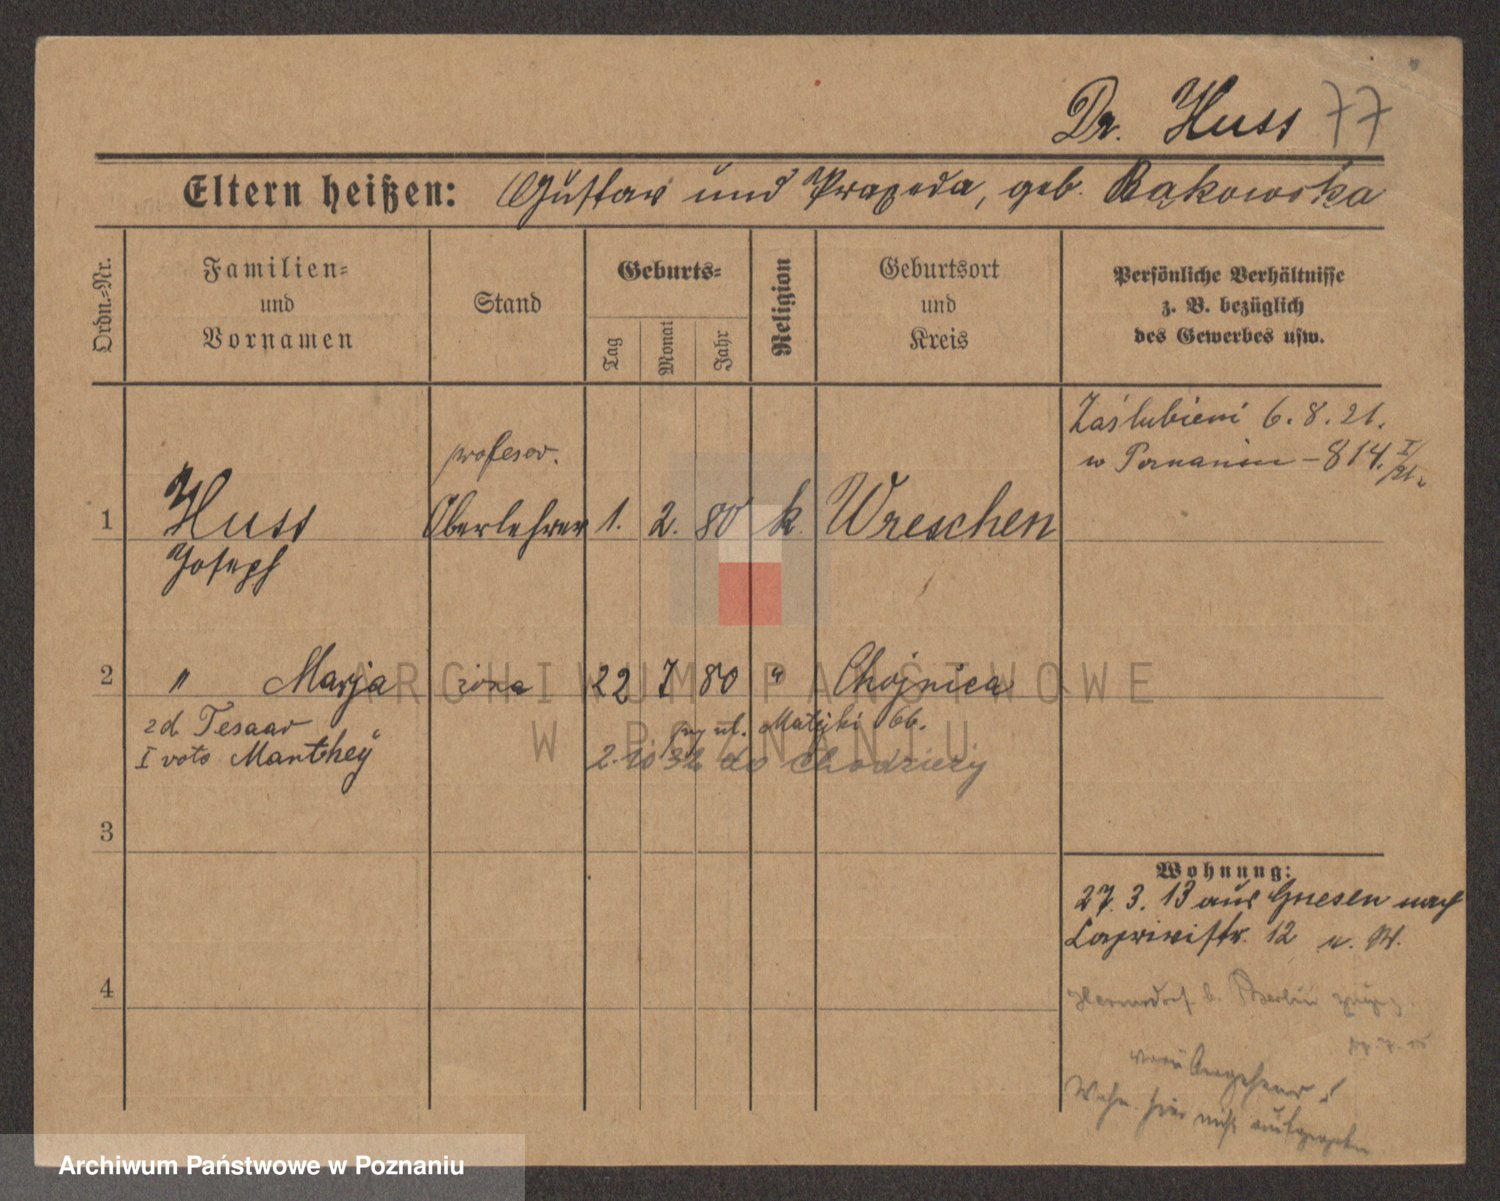 Dr. Huss 77
Eltern heißen: Gustav und Praxeda, geb. Bąkowska
Ordn.-Nr.
Familien-
und
Vornamen
Stand
Geburts-
Tag
Monat
Jahr
Religion
Geburtsort
und
Kreis
Persönliche Verhältnisse
z. B. bezüglich
des Gewerbes usw.
Zaślubieni 6. 8. 21.
w Poznaniu – 814. I/21.
profesor.
1 Huss Oberlehrer 1. 2. 80 k. Wreschen
Joseph
2 " Marja żona 22 7 80 " Chojnica
zd. Tesaar
ul. Matejki 66.
I voto Manthey
2.10 32 do Chodzieży
3
Wohnung:
27. 3. 13 aus Gnesen nach
Caprivistr. 12 u. M.
4
b. Berlin
Angehener !
Wohn. hier nicht aufgegeben
ARCHIWUM PAŃSTWOWE
W POZNANIU
Archiwum Państwowe w Poznaniu